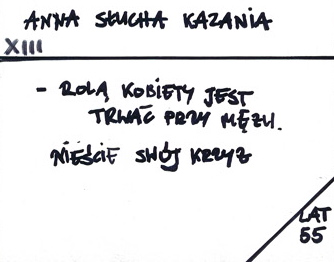 ANNA SŁUCHA KAZANIA
XIII
- ROLĄ KOBIETY JEST
TRWAĆ PRZY MĘŻU.
NIEŚCIE SWÓJ KRZYŻ
LAT
55